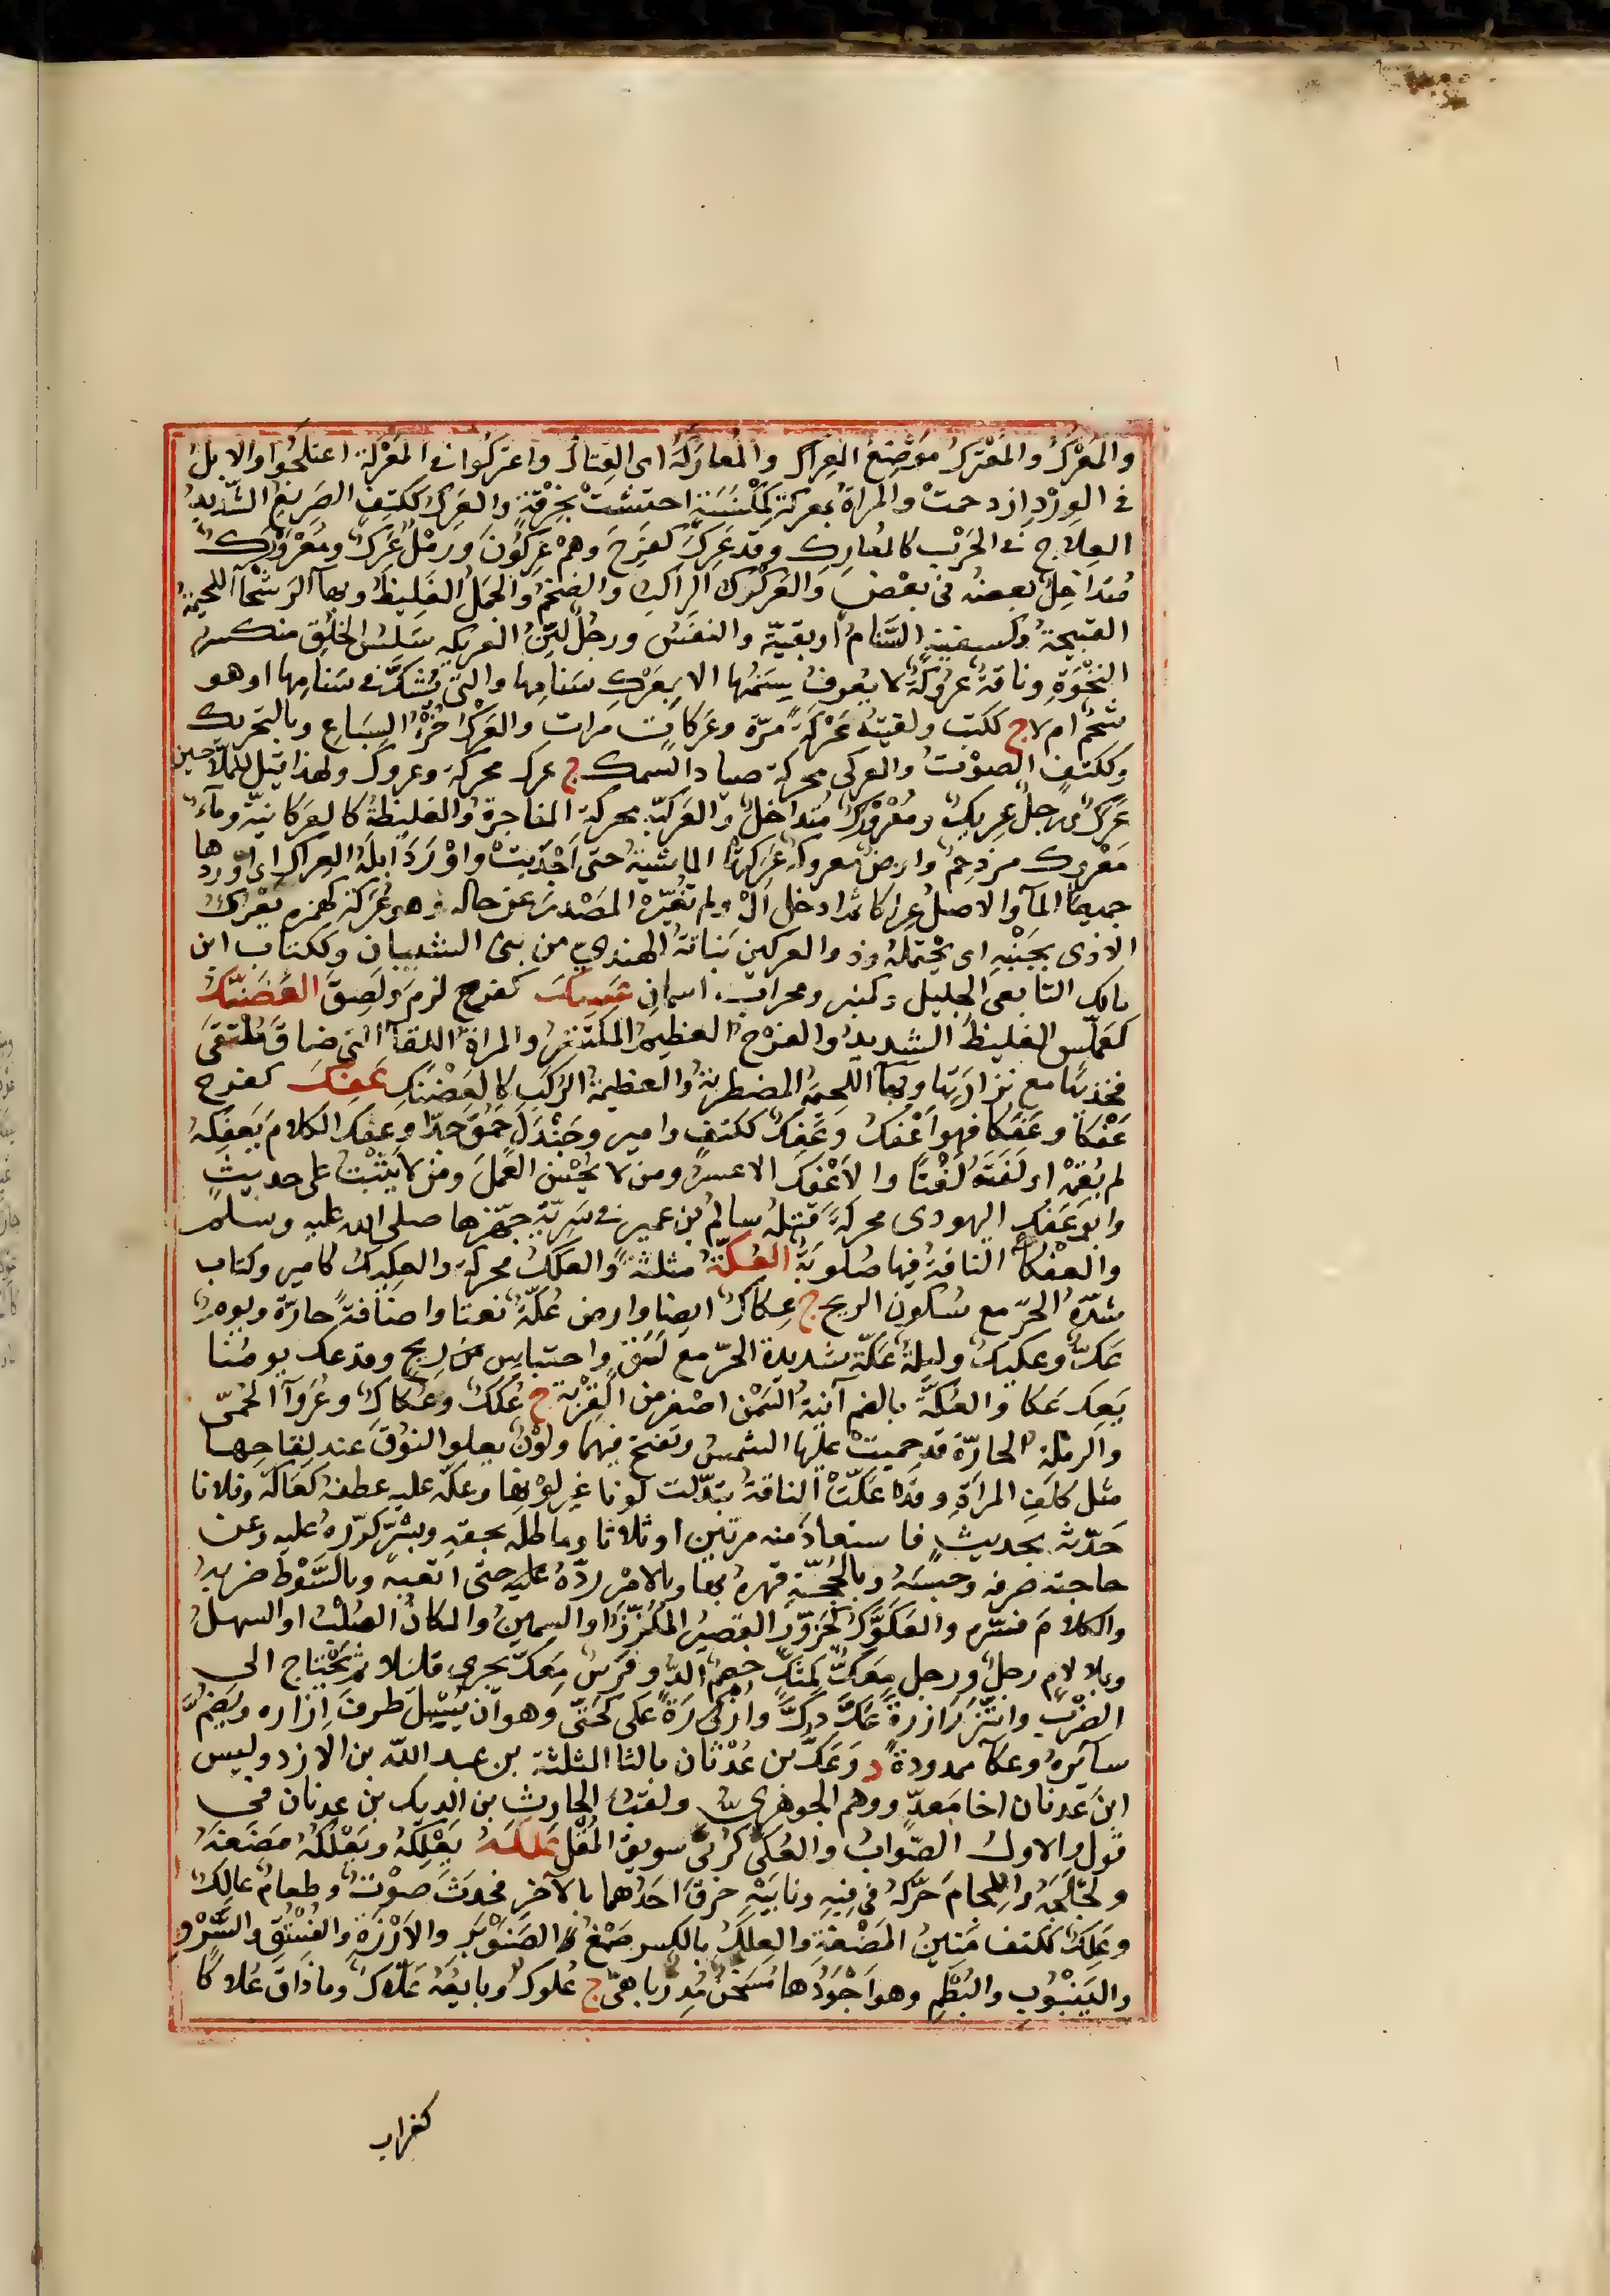 والمَعْرَكُ والمُعْتَرَكُ مَوْضِعُ العِراكِ والمُعارَكَةُ اى القِتالُ واعتركُوا فى المَعْرَكَةِ اعتلَجُوا والابلُ
فى الوِرْدِ ازدحمتْ والمرأةُ بمعركةٍ كمِكْنَسَةٍ احتشتْ بخِرْقةٍ والعَرِكُ ككَتِفٍ الصَرِيعُ الشَديدُ
العِلاجِ فى الحَرْبِ كالمُعارِكِ وقد عَرِكَ كفَرِحَ وهُمْ عَرِكُونَ ورَمْلٌ عَرِكٌ ومُعْرَوْرِكٌ
مُتداخِلٌ بعضُه فى بعْضٍ والعَرَكْرَكُ الراكبُ والضخمُ والجَمَلُ الغَليظُ وبهاء الرَسْحَاء اللحيمةُ
القبيحةُ وكسفينةٍ السَّنامُ او بقيّته والنفسُ ورجُلٌ ليّنُ العَريكةِ سَلِسُ الخلُقِ منكسرُ
النَخْوَةِ وناقةٌ عَرُوكٌ لا يُعرفُ سِمَنُها الا بعَرْكِ سَنامِها والتى يُشَكُّ فى سَنامِها اوهو
شحمٌ ام لا ج ككتب ولقيته عَرْكَةً مَرّةً وعَرَكاتٍ مرات والعَرْكُ خُرْءُ السِباعِ وبالتحريك
وككتفٍ الصوْتُ والعركى محركة صياد السمك ج عرك محركة وعروك ولهذا قيل للملّاحين
عَرَكٌ ورجلٌ عَرِيكٌ ومُعْرَوْرِكٌ مُتداخلٌ والعَرَكيّة محركة الفاجرةُ والغليظةُ كالعَركانيّة وماءٌ
مَعْروك مزدحمٌ وارضٌ معروكةٌ عَرَكَتْها الماشيةُ حتى اَجْدَبَتْ واَوْرَدَ ابلَهُ العِراكَ اى اَوْردها
جميعًا المآء والاصلُ عِراكًا ثم ادخل اَلْ ولم تُغَيّرْهُ المَصْدرَ عن حاله وهو عُرَكَةٌ كهمزةٍ يَعْرُكُ
الاذى بجَنْبِه اى يحتملهُ وذو العركين نَباتةُ الهنديّ من بنى الشيبان وككتاب ابن
مالك التابعى الجليل وكمنبر ومحراب اسمان عَسِكَ كفرح لزمَ ولَصِقَ العَضَنَّكُ
كعملّسٍ الغليظُ الشديدُ والفَرْجُ العظيمُ المكتنزُ والمراةُ اللفّآء التى ضاقَ مُلْتَقَى
فخذيْها مع تَرارَتِها وبهآء اللحيمة المضطربةُ والعظيمةُ الركَبِ كالعَضْنَكِ عَفِكَ كفرح
عَفْكًا وعَفَكًا فهو اَعْفَكُ وعَفِكٌ ككتفٍ وامير وجَنْدَلٍ حَمُقَ جدًّا وعفك الكلامَ يَعفِكُهُ
لم يُقِمْه او لَفَتَهُ لَفْتًا والاَعْفَكُ الاعسرُ ومن لا يُحْسِنُ العَمَلَ ومَن لا يثْبُتُ على حديثٍ
وابو عَفَكٍ اليهودى محركةً قتلهُ سالمُ بن عمير فى سَرِيّةٍ جهّزها صلى الله عليه وسلم
والعفْكآءُ الناقةُ فيها صُعُوبَةٌ العُكّةُ مثلثةً والعَكَكُ محركةً والعكيكُ كامير وكتاب
شدّةُ الحَرّ مع سُكون الريح ج عِكاكٌ ايضا وارض عُكّةٌ نعتا واضافةً حارّةٌ ويومٌ
عَكٌّ وعكيكٌ وليلةٌ عَكّة شديدة الحَرّ مع لَثَقٍ واحتباسٍ من ريح وقد عك يومُنا
يَعِكّ عَكّا والعُكّةُ بالضم آنيةُ السَمْنِ اصغر من القِرْبة ج عُكَكٌ وعِكاكٌ وعُرَوآء الحُمّى
والرملةُ الحارّةُ قد حميتْ عليها الشمسُ وتفتح فيهما ولَوْنٌ يعلو النوُقَ عند لِقاحِها
مثل كلَفِ المرأةِ وقد عَكّتْ الناقةُ تبدّلت لونا غير لوْنِها وعَكّه عليه عطفه كعاكّه وفلانا
حَدّثه بحديثٍ فاستعادَه منه مرتين او ثلاثا وماطله بحقه وبشَرٍّ كرّرهُ عليه وعن
حاجته صرفه وحبسَهُ وبالحُجّةِ قهرهُ بها وبالامْرِ ردّهُ عليه حتى اتعبه وبالسَّوْط ضربهُ
والكلامَ فسّره والعَكَوَّكُ كحَزوَّرٍ القصيرُ المُلَزَّزُ او السمينُ والمكانُ الصُلْبُ او السهلُ
وبلا لامٍ رجلٌ ورجل مِعَكٌّ كمِتَكٍّ خصمٌ الدُّ وفرَسٌ مِعَكّ يجرى قليلا ثم يَحْتاج الى
الضرْبِ وائتَزَرَ ازرة عَكَّ وَكَّ وازرة عَكَّى كحَتّى وهو ان يُسْبِلَ طرفَىْ اِزاره ويَضُمَّ
سآئِرهُ وعكآء ممدودة د وعَكّ بن عُدْثان بالثا المثلثة بن عبد اللّه بن الازد وليس
ابنَ عدنان اخا مَعدٍّ ووهم الجوهرىُّ ولقبُ الحارث بن الديك بن عدنان فى
قول والاولُ الصّوابُ والعُكّى كرُبّى سويقُ المُقْلِ عَلَكَهُ يَعْلِكُهُ ويَعْلُكُهُ مَضَغَهُ
ولَجْلَجَهُ واللِجامَ حَرّكهُ فى فِيهِ ونابَيْهِ حَرَقَ احَدَهما بالآخَرِ فحدَثَ صوْتٌ وطعامٌ عالِكٌ
وعَلِكٌ ككتف مَتينُ المَضْغةِ والعِلْكُ بالكسر صَمْغُ الصَنَوْبَرِ والاَرْزَةِ والفُسْتُقِ والسَّرْوِ
واليَنْبُوبِ والبُطْمِ وهو اَجْوَدُها مُسَخّنٌ مُدِرٌّ باهىٌّ ج عُلوك وبايعُهُ عَلّاكٌ وما ذاقَ عُلاكًا
كغراب